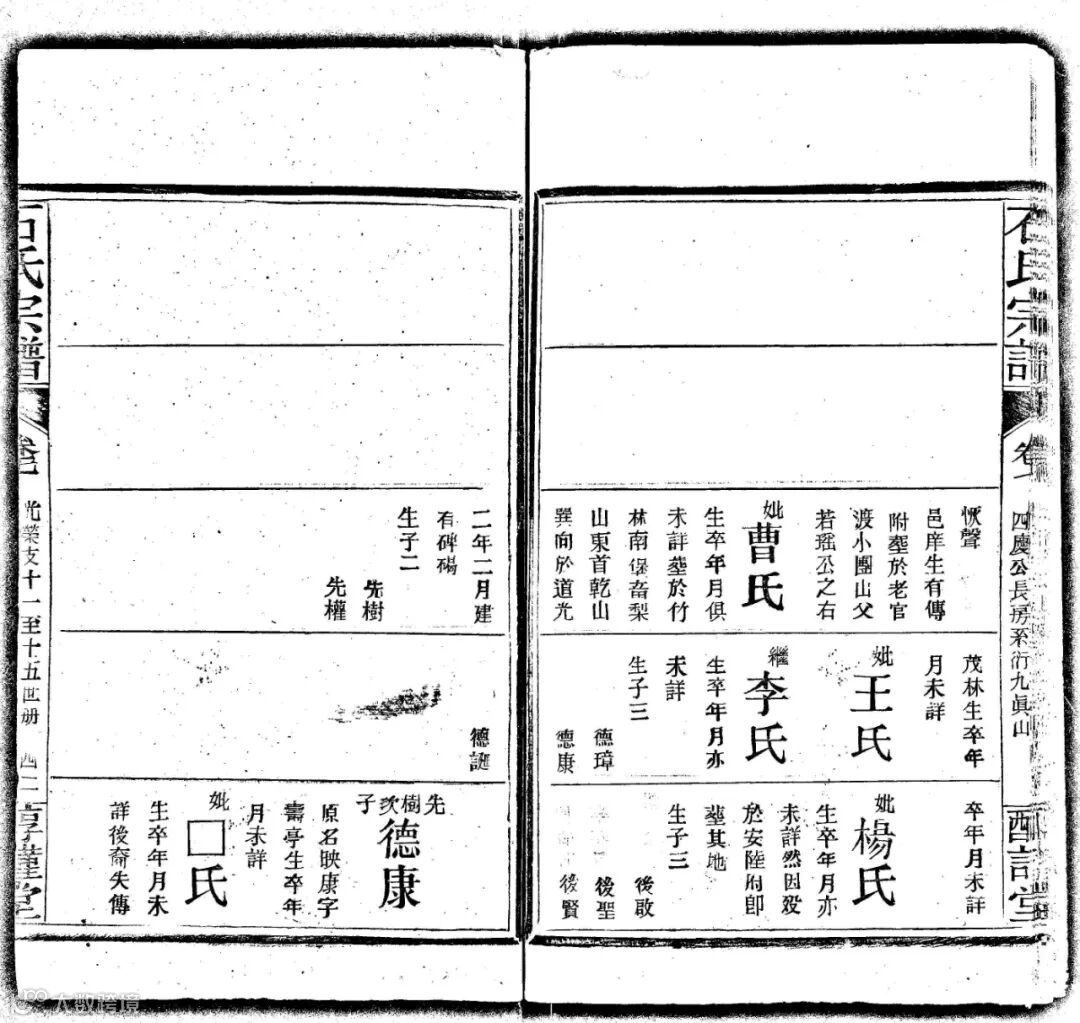 石氏宗譜
卷
四慶公長房系衍九眞山
恢聲
邑庠生有傳
附塟於老官
渡小團山父
若瑶公之右
妣曹氏
生卒年月俱
未詳塟於竹
林南保畜梨
山東首乾山
巽向於道光
茂林生卒年
月未詳
妣王氏
繼李氏
生卒年月亦
未詳
生子三
德璋
德康
卒年月未詳
妣楊氏
生卒年月亦
未詳然因歿
於安陸府卽
塟其地
生子三
後啟
後聖
後賢
二年二月建
有碑碣
生子二
先樹
先權
德謎
先樹次子德康
原名映康字
壽亭生卒年
月未詳
妣□氏
生卒年月未
詳後裔失傳
石氏宗譜
卷
光榮支十一至十五世册
大数跨境